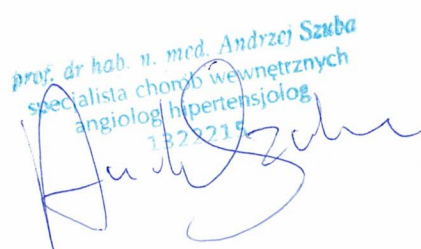 prof. dr hab. n. med. Andrzej Szuba
specjalista chorób wewnętrznych
angiolog hipertensjolog
1322215